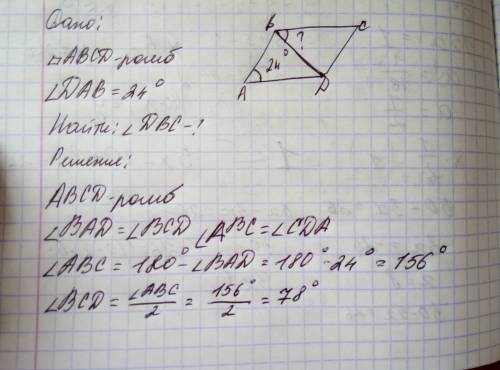 Дано:
▱ABCD-ромб
∠DAB = 24°
Найти: ∠DBC - ?
Решение:
B C
?
24°
A D
ABCD-ромб
∠BAD = ∠BCD ∠ABC = ∠CDA
∠ABC = 180° - ∠BAD = 180° - 24° = 156°
∠BCD = ∠ABC/2 = 156°/2 = 78°